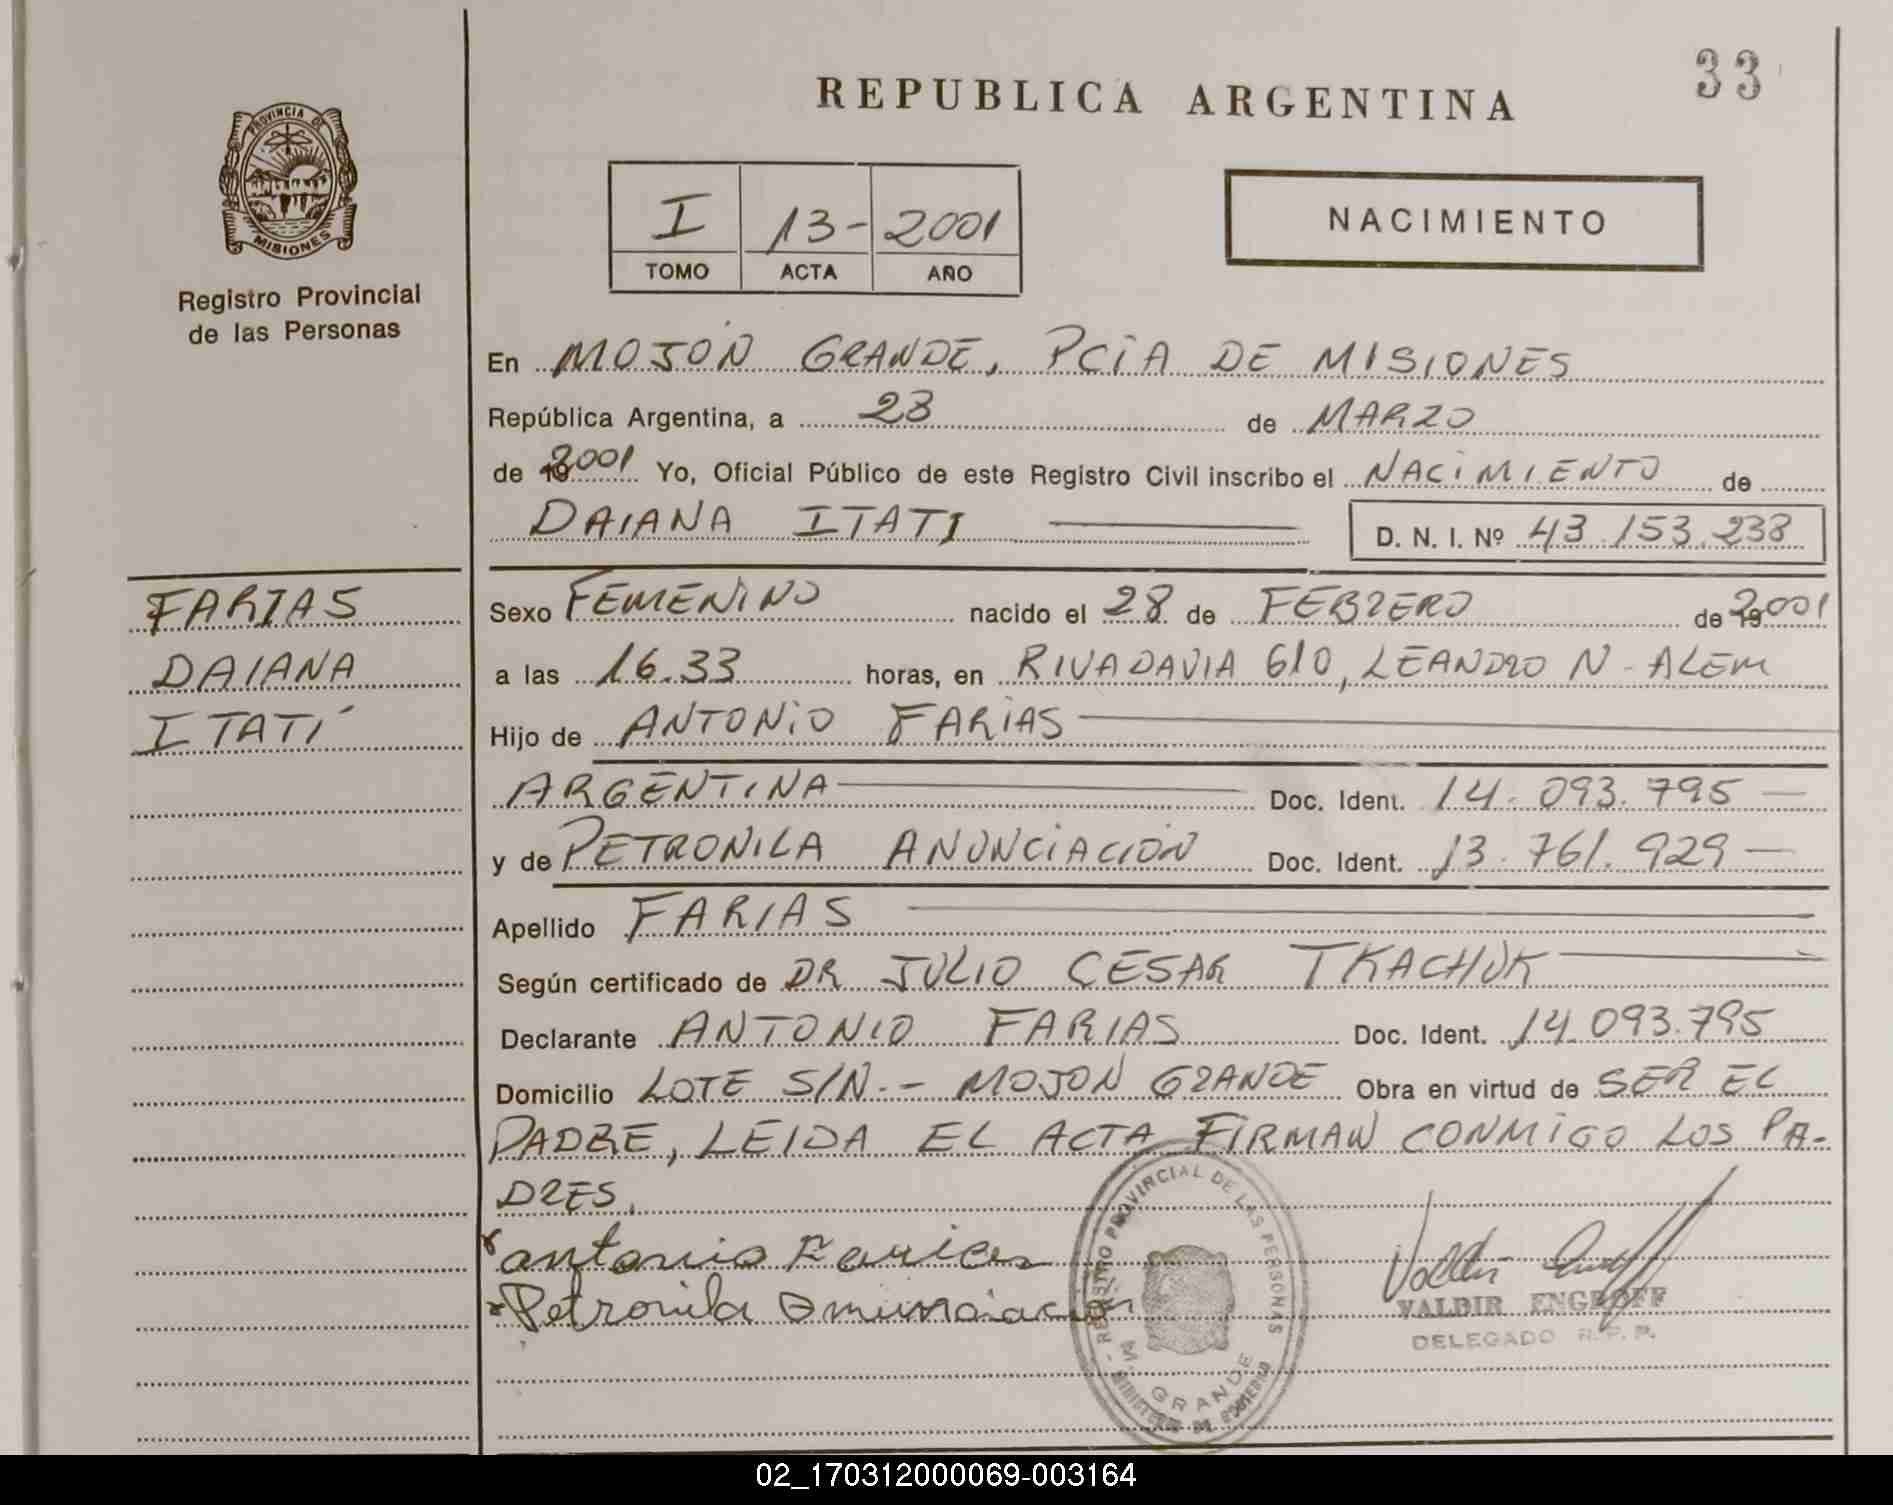 33
REPUBLICA ARGENTINA
PROVINCIA DE
MISIONES
Registro Provincial
de las Personas
I 13- 2001
TOMO ACTA AÑO
NACIMIENTO
En MOJON GRANDE, PCIA DE MISIONES
República Argentina, a 23 de MARZO
de 2001 Yo, Oficial Público de este Registro Civil inscribo el NACIMIENTO de
DAIANA ITATI D. N. I. Nº 43.153.238
FARIAS
DAIANA
ITATÍ
Sexo FEMENINO nacido el 28 de FEBRERO de 2001
a las 16.33 horas, en RIVADAVIA 610, LEANDRO N. ALEM
Hijo de ANTONIO FARIAS
ARGENTINA Doc. Ident. 14.093.795
y de PETRONILA ANUNCIACIÓN Doc. Ident. 13.761.929
Apellido FARIAS
Según certificado de DR JULIO CESAR TKACHUK
Declarante ANTONIO FARIAS Doc. Ident. 14.093.795
Domicilio LOTE S/N.- MOJON GRANDE Obra en virtud de SER EL
PADRE, LEIDA EL ACTA FIRMAN CONMIGO LOS PA-
DRES.
antonio Farias
Petronila Anunciacion
REGISTRO PROVINCIAL DE LAS PERSONAS
M. GRANDE
MINISTERIO DE GOBIERNO
VALDIR ENGROFF
DELEGADO R.P.P.
02_170312000069-003164